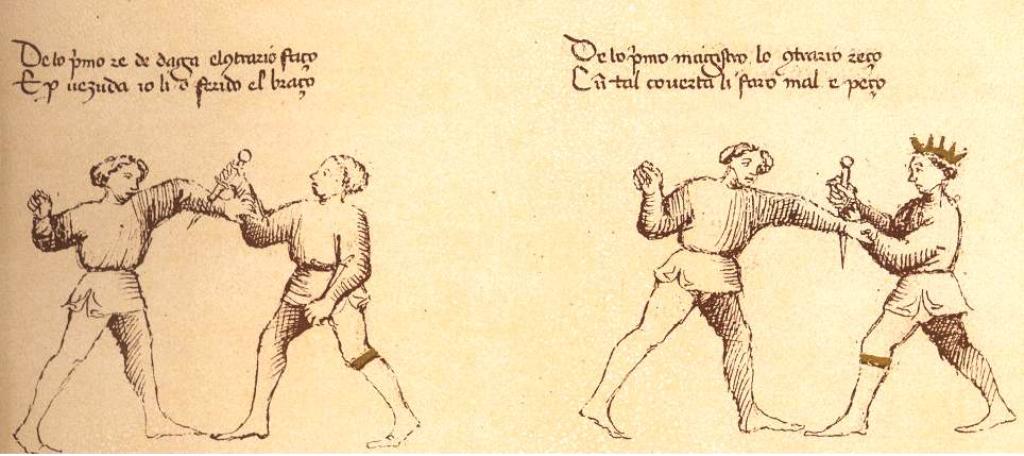 De lo p̄mo re de daga elɔtrario faço
E ꝑ uezuda io li o ferido el braço
De lo p̄mo magistro lo ɔtrario reço
Cū tal couerta li faro mal e peço